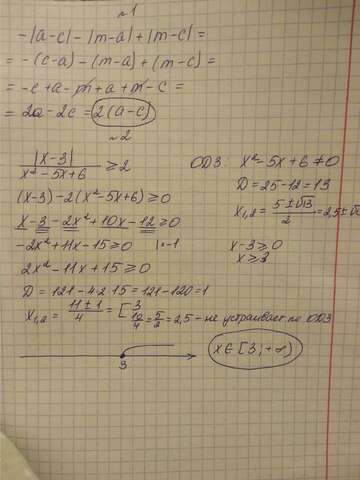 №1
-|a-c|-|m-a|+|m-c|=
= -(c-a)-(m-a)+(m-c)=
= -c+a-m+a+m-c=
= 2a-2c= 2(a-c)
№2
|x-3| / x²-5x+6 ≥ 2 ОДЗ: x²-5x+6≠0
(x-3)-2(x²-5x+6)≥0 D=25-12=13
x-3-2x²+10x-12≥0 x₁,₂= 5±√13 / 2 =2,5±√
-2x²+11x-15≥0 |·-1 x-3≥0
2x²-11x+15≥0 x≥3
D=121-4·2·15=121-120=1
x₁,₂= 11±1 / 4 = [ 3
10/4 = 5/2 = 2,5 - не устраивает по ОДЗ
3 x∈[3;+∞)